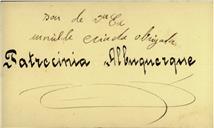 sou de V.ª Ex.ª
humilde criada obrigada
Patrocinia Albuquerque